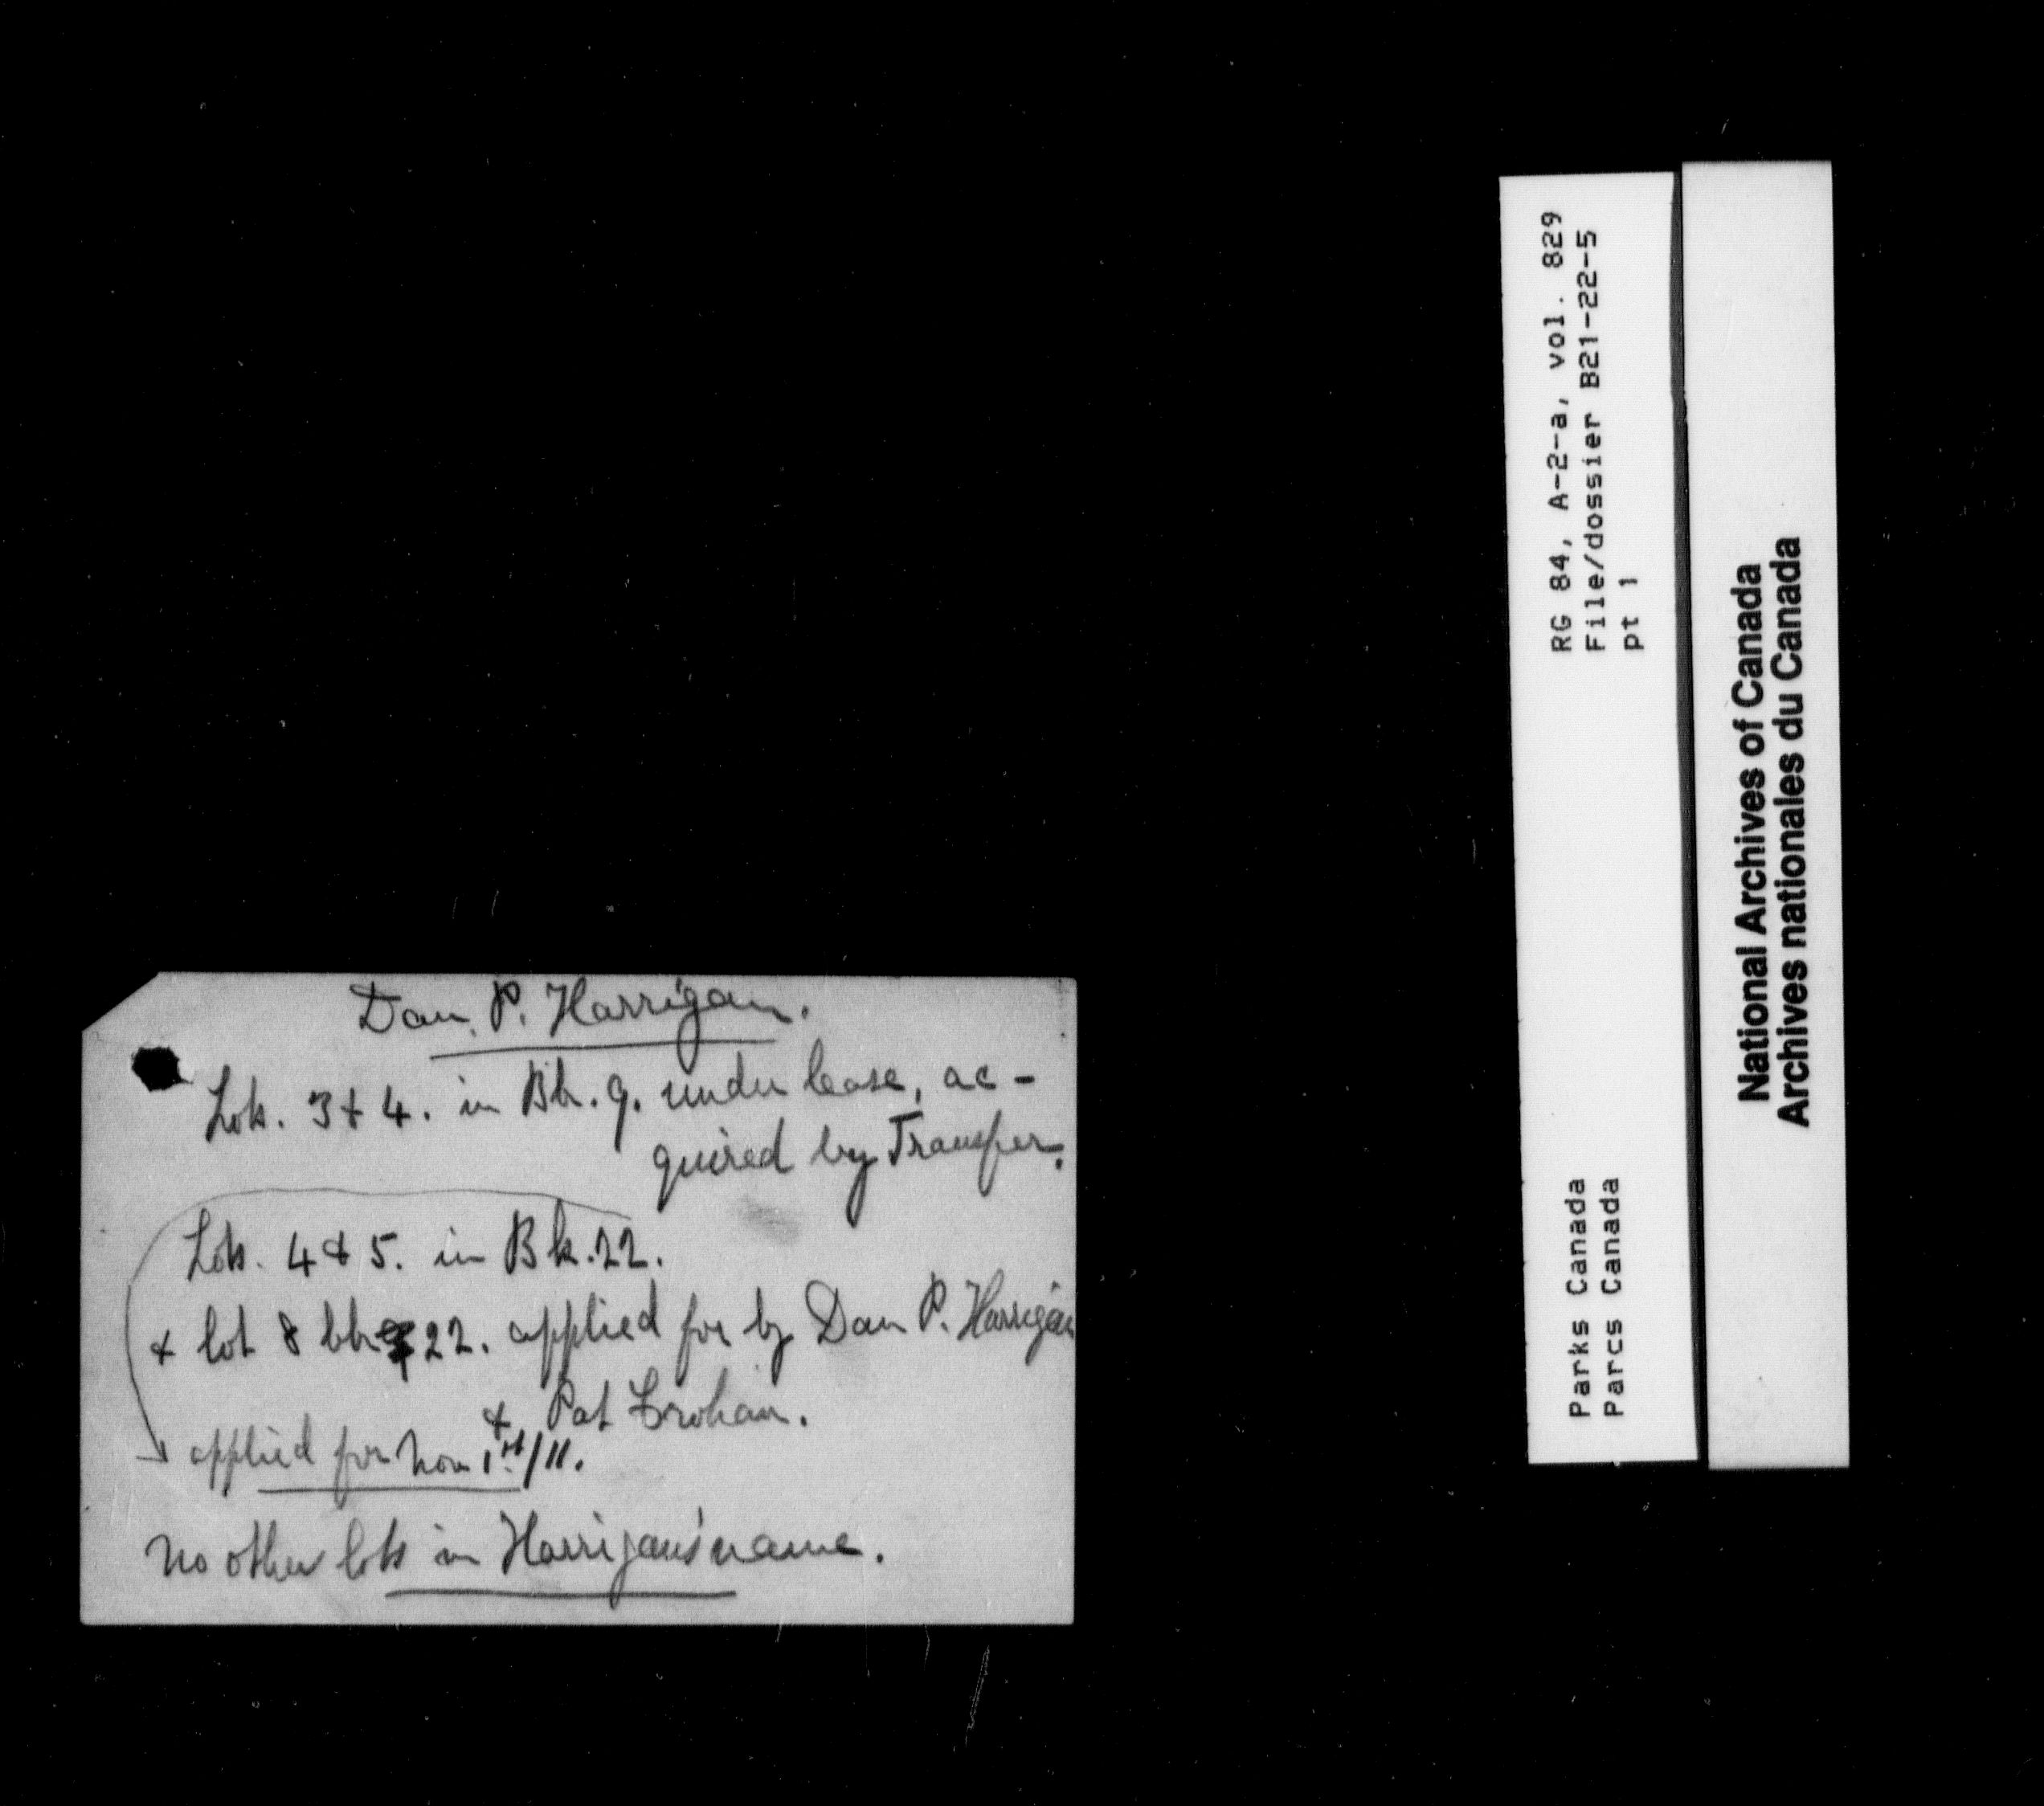 Dan. P. Harrigan.
Lots. 3 & 4. in Bk. 9. under lease, ac-
quired by Transfer.
Lots. 4 & 5. in Bk. 22.
& lot 8 bk 22. applied for by Dan P. Harrigan
& Pat
applied for Nov 1st/11.
No other lots in Harrigan's name.
RG 84, A-2-a, vol. 829
File/dossier B21-22-5
pt 1
Parks Canada
Parcs Canada
National Archives of Canada
Archives nationales du Canada